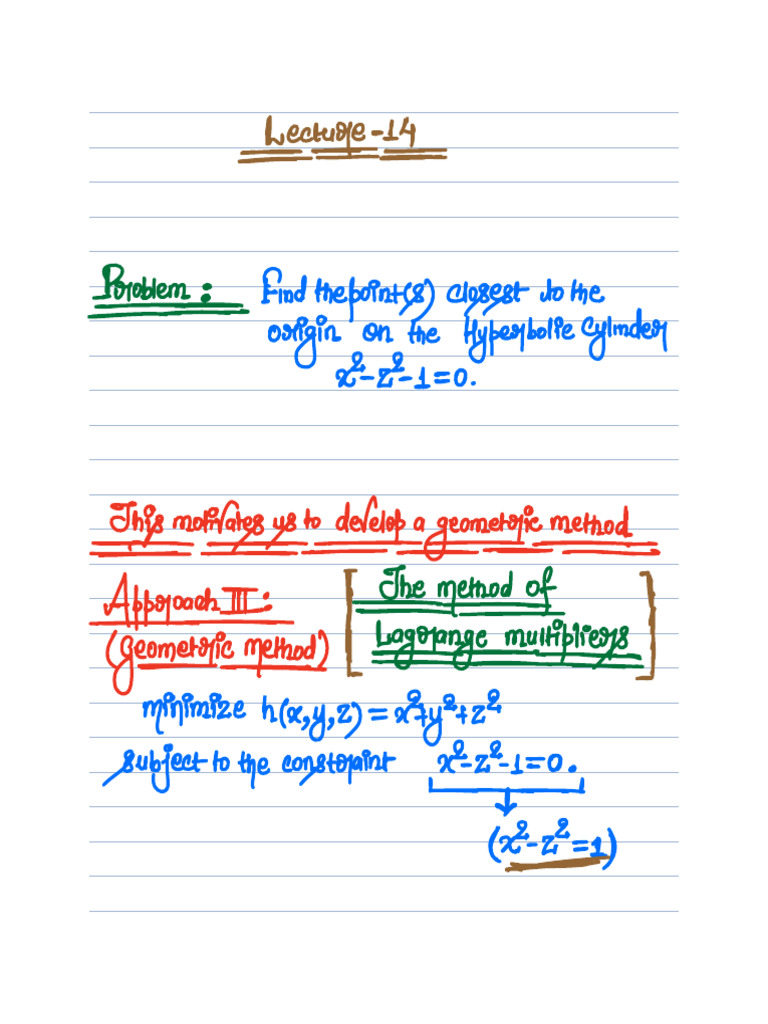 Lecture-14
Problem: Find the point(s) closest to the
origin on the Hyperbolic Cylinder
x²-z²-1=0.
This motivates us to develop a geometric method
Approach III: [The method of
(Geometric method) Lagrange multipliers]
minimize h(x,y,z) = x²+y²+z²
subject to the constraint x²-z²-1=0.
(x²-z²=1)